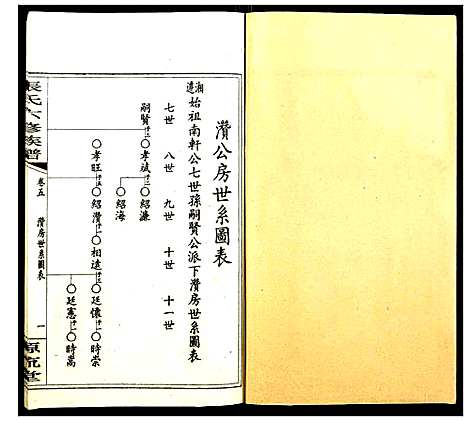 濟公房世系圖表
湘遷始祖南軒公七世孫嗣賢公派下濟房世系圖表
七世 八世 九世 十世 十一世
嗣賢 孝斌 紹濂
紹海
孝旺 紹濟 相遠 廷懷 時崇
廷憲 時嵩
張氏六修族譜
卷五 濟房世系圖表 一
源流堂